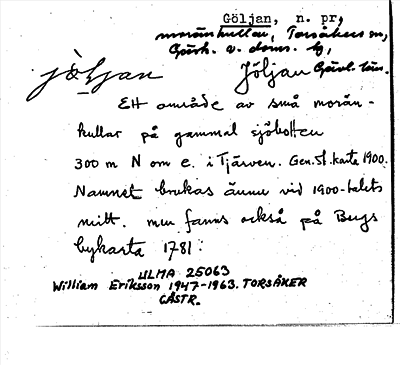 Göljan, n. pr.,
moränkullar, Torsåkers sn,
Gävl. län.
jöljan Jöljan
Ett område av små morän-
kullar på gammal sjöbotten
300 m N om e. i Tjärven. Gen.st.karta 1900.
Namnet brukas ännu vid 1900-talets
mitt. men fanns också på Bergs
bykarta 1781.
ULMA 25063
William Eriksson 1947-1963. TORSÅKER
GÄSTR.